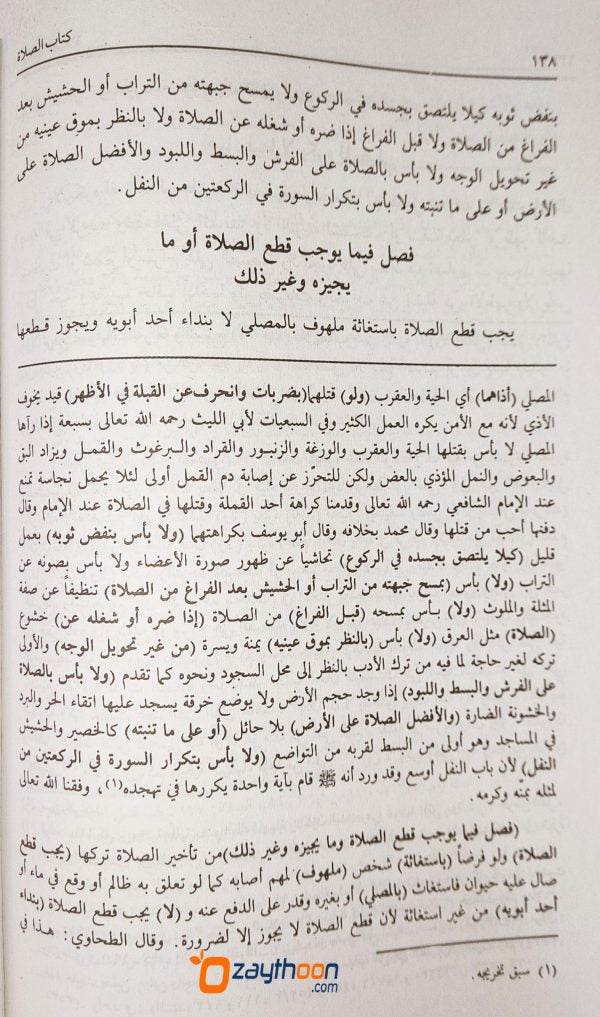 ١٣٨
كتاب الصلاة
بنفض ثوبه كيلا يلتصق بجسده في الركوع ولا يمسح جبهته من التراب أو الحشيش بعد
الفراغ من الصلاة ولا قبل الفراغ إذا ضره أو شغله عن الصلاة ولا بالنظر بموق عينيه من
غير تحويل الوجه ولا بأس بالصلاة على الفرش والبسط واللبود والأفضل الصلاة على
الأرض أو على ما تنبته ولا بأس بتكرار السورة في الركعتين من النفل.
فصل فيما يوجب قطع الصلاة أو ما
يجيزه وغير ذلك
يجب قطع الصلاة باستغاثة ملهوف بالمصلي لا بنداء أحد أبويه ويجوز قطعها
المصلي (أذاهما) أي الحية والعقرب (ولو) قتلهما(بضربات وانحرف عن القبلة في الأظهر) قيد يخوف
الأذي لأنه مع الأمن يكره العمل الكثير وفي السبعيات لأبي الليث رحمه الله تعالى بسبعة إذا رآها
المصلي لا بأس بقتلها الحية والعقرب والوزغة والزنبور والقراد والبرغوث والقمل ويزاد البق
والبعوض والنمل المؤذي بالعض ولكن للتحرّز عن إصابة دم القمل أولى لئلا يحمل نجاسة تمنع
عند الإمام الشافعي رحمه الله تعالى وقدمنا كراهة أحد القملة وقتلها في الصلاة عند الإمام وقال
دفنها أحب من قتلها وقال محمد بخلافه وقال أبو يوسف بكراهتهما (ولا بأس بنفض ثوبه) بعمل
قليل (كيلا يلتصق بجسده في الركوع) تحاشياً عن ظهور صورة الأعضاء ولا بأس بصونه عن
التراب (ولا) بأس (بمسح جبهته من التراب أو الحشيش بعد الفراغ من الصلاة) تنظيفاً عن صفة
المثلة والملوث (ولا) بأس بمسحه (قبل الفراغ) من الصلاة (إذا ضره أو شغله عن) خشوع
(الصلاة) مثل العرق (ولا) بأس (بالنظر بموق عينيه) يمنة ويسرة (من غير تحويل الوجه) والأولى
تركه لغير حاجة لما فيه من ترك الأدب بالنظر إلى محل السجود ونحوه كما تقدم (ولا بأس بالصلاة
على الفرش والبسط واللبود) إذا وجد حجم الأرض ولا يوضع خرقة يسجد عليها اتقاء الحر والبرد
والخشونة الضارة (والأفضل الصلاة على الأرض) بلا حائل (أو على ما تنبته) كالحصير والحشيش
في المساجد وهو أولى من البسط لقربه من التواضع (ولا بأس بتكرار السورة في الركعتين من
النفل) لأن باب النفل أوسع وقد ورد أنه ﷺ قام بآية واحدة يكررها في تهجده(١)، وفقنا الله تعالى
لمثله بمنّه وكرمه.
(فصل فيما يوجب قطع الصلاة وما يجيزه وغير ذلك)من تأخير الصلاة تركها (يجب قطع
الصلاة) ولو فرضاً (باستغاثة) شخص (ملهوف) لمهم أصابه كما لو تعلق به ظالم أو وقع في ماء أو
صال عليه حيوان فاستغاث (بالمصلي) أو بغيره وقدر على الدفع عنه و (لا) يجب قطع الصلاة (بنداء
أحد أبويه) من غير استغاثة لأن قطع الصلاة لا يجوز إلا لضرورة. وقال الطحاوي: هذا في
(١) سبق تخريجه.
zaythoon
.com